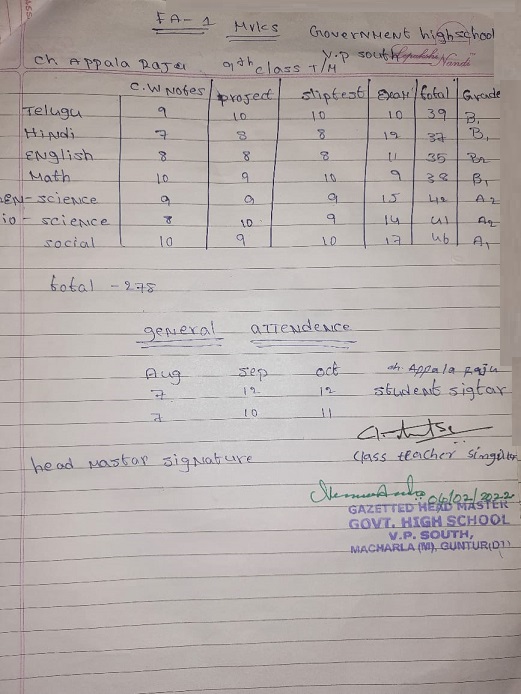 FA-1 Mvlcs Government high school
ch Appala Raju 9th class T/M V.P south
C.W Notes project sliptest Exam total Grade
Telugu 9 10 10 10 39 B1
Hindi 7 8 8 12 37 B1
English 8 8 8 11 35 B2
Math 10 9 10 9 38 B1
EN-science 9 9 9 15 42 A2
io-science 8 10 9 14 41 A2
social 10 9 10 17 46 A1
total - 278
general attendence
Aug sep oct ch. Appala Raju
7 12 12 student sigtar
7 10 11
head mastar signature class teacher singutar
06/02/2022
GAZETTED HEAD MASTER
GOVT. HIGH SCHOOL
V.P. SOUTH,
MACHARLA (M), GUNTUR(DT)